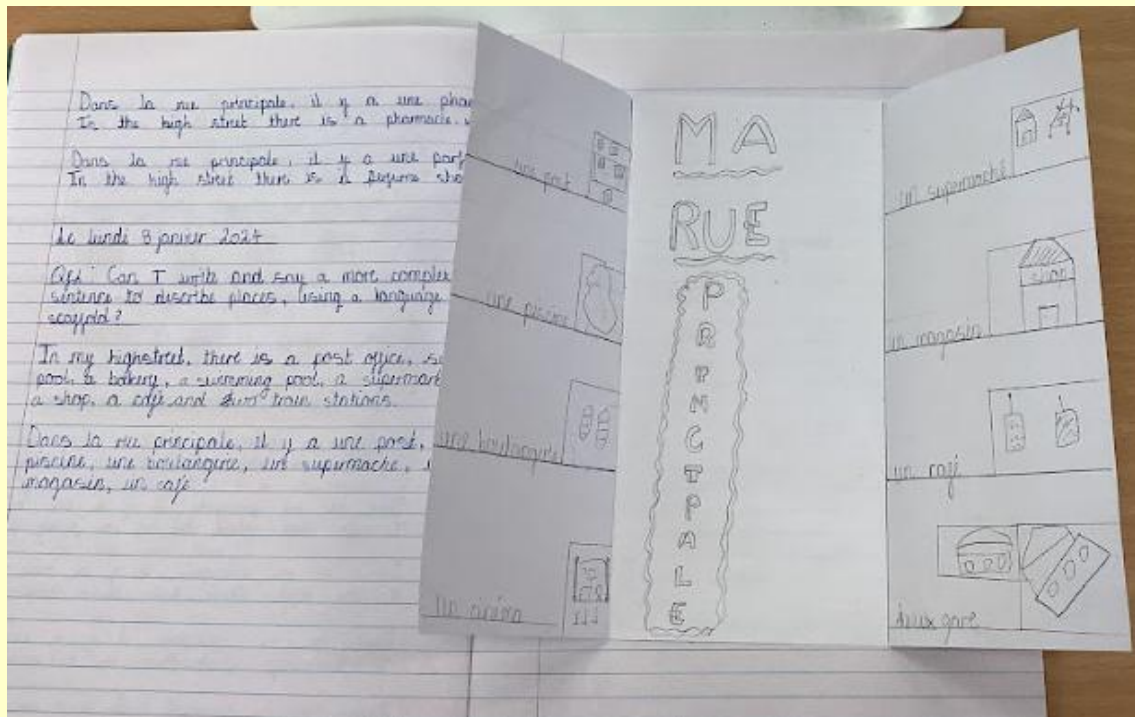 Dans la rue principale, il y a une phar
In the high street there is a pharmacie,
Dans la rue principale, il y a une parf
In the high street there is a perfume sho
Le lundi 8 janvier 2024
Can I write and say a more complex
sentence to describe places, using a language
scaffold?
In my highstreet, there is a post office, s
pool, a bakery, a swimming pool, a supermark
a shop, a café and two train stations.
Dans la rue principale, il y a une post,
piscine, une boulangerie, un supermache,
magasin, un café
une post
une piscine
une boulangerie
un cinéma
MA
RUE
PRINCIPALE
un supermaché
shop
un magasin
un café
deux gare